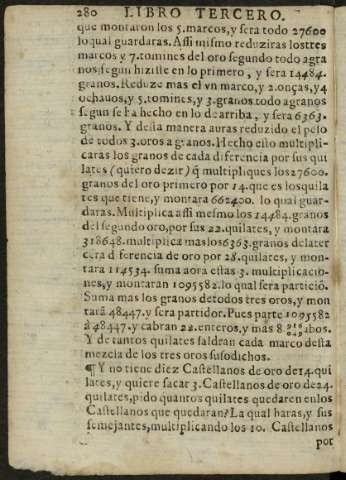 280 LIBRO TERCERO.
que montaron los 5.marcos,y sera todo 27600
lo qual guardaras. Assi mismo reduziras los tres
marcos y 7.tomines del oro segundo todo a gra
nos segun hiziste en lo primero, y sera 14484.
granos. Reduze mas el vn marco, y 2.onças, y 4
ochauos, y 5.tomines, y 3.granos todo a granos
segun se ha hecho en lo de arriba, y sera 6363.
granos. Y desta manera auras reduzido el peso
de todos 3.oros a granos. Hecho esto multipli-
caras los granos de cada diferencia por sus qui
lates (quiero dezir) q̃ multipliques los 27600.
granos del oro primero por 14.que es los quila
tes que tiene, y montara 662400. lo qual guar-
daras. Multiplica assi mesmo los 14484.granos
del segundo oro, por sus 22.quilates, y montara
318648. multiplica mas los 6363.granos de la ter
cera d ferencia de oro por 28.quilates, y mon-
tara 114534. suma aora estas 3. multiplicacio-
nes, y montaran 1095582.lo qual sera particiõ.
Suma mas los granos de todos tres oros, y mon
tarã 48447.y sera partidor. Pues parte 1095582
à 48447.y cabran 22.enteros, y mas abos.
Y de tantos quilates saldran cada marco desta
mezcla de los tres oros susodichos.
¶ Y no tiene diez Castellanos de oro de 14.qui
lates, y quiere sacar 3. Castellanos de oro de 24.
quilates, pido quantos quilates quedaren en los
Castellanos que quedaran? La qual haras, y sus
semejantes, multiplicando los 10. Castellanos
por